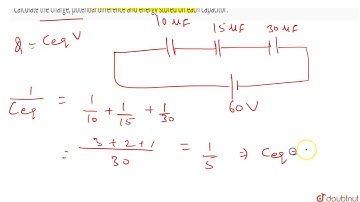 Calculate the charge, potential difference and energy stored on each capacitor.
10 μF 15 μF 30 μF
Q = Ceq V
60 V
1/Ceq = 1/10 + 1/15 + 1/30
= 3+2+1/30 = 1/5 ⇒ Ceq =
doubtnut